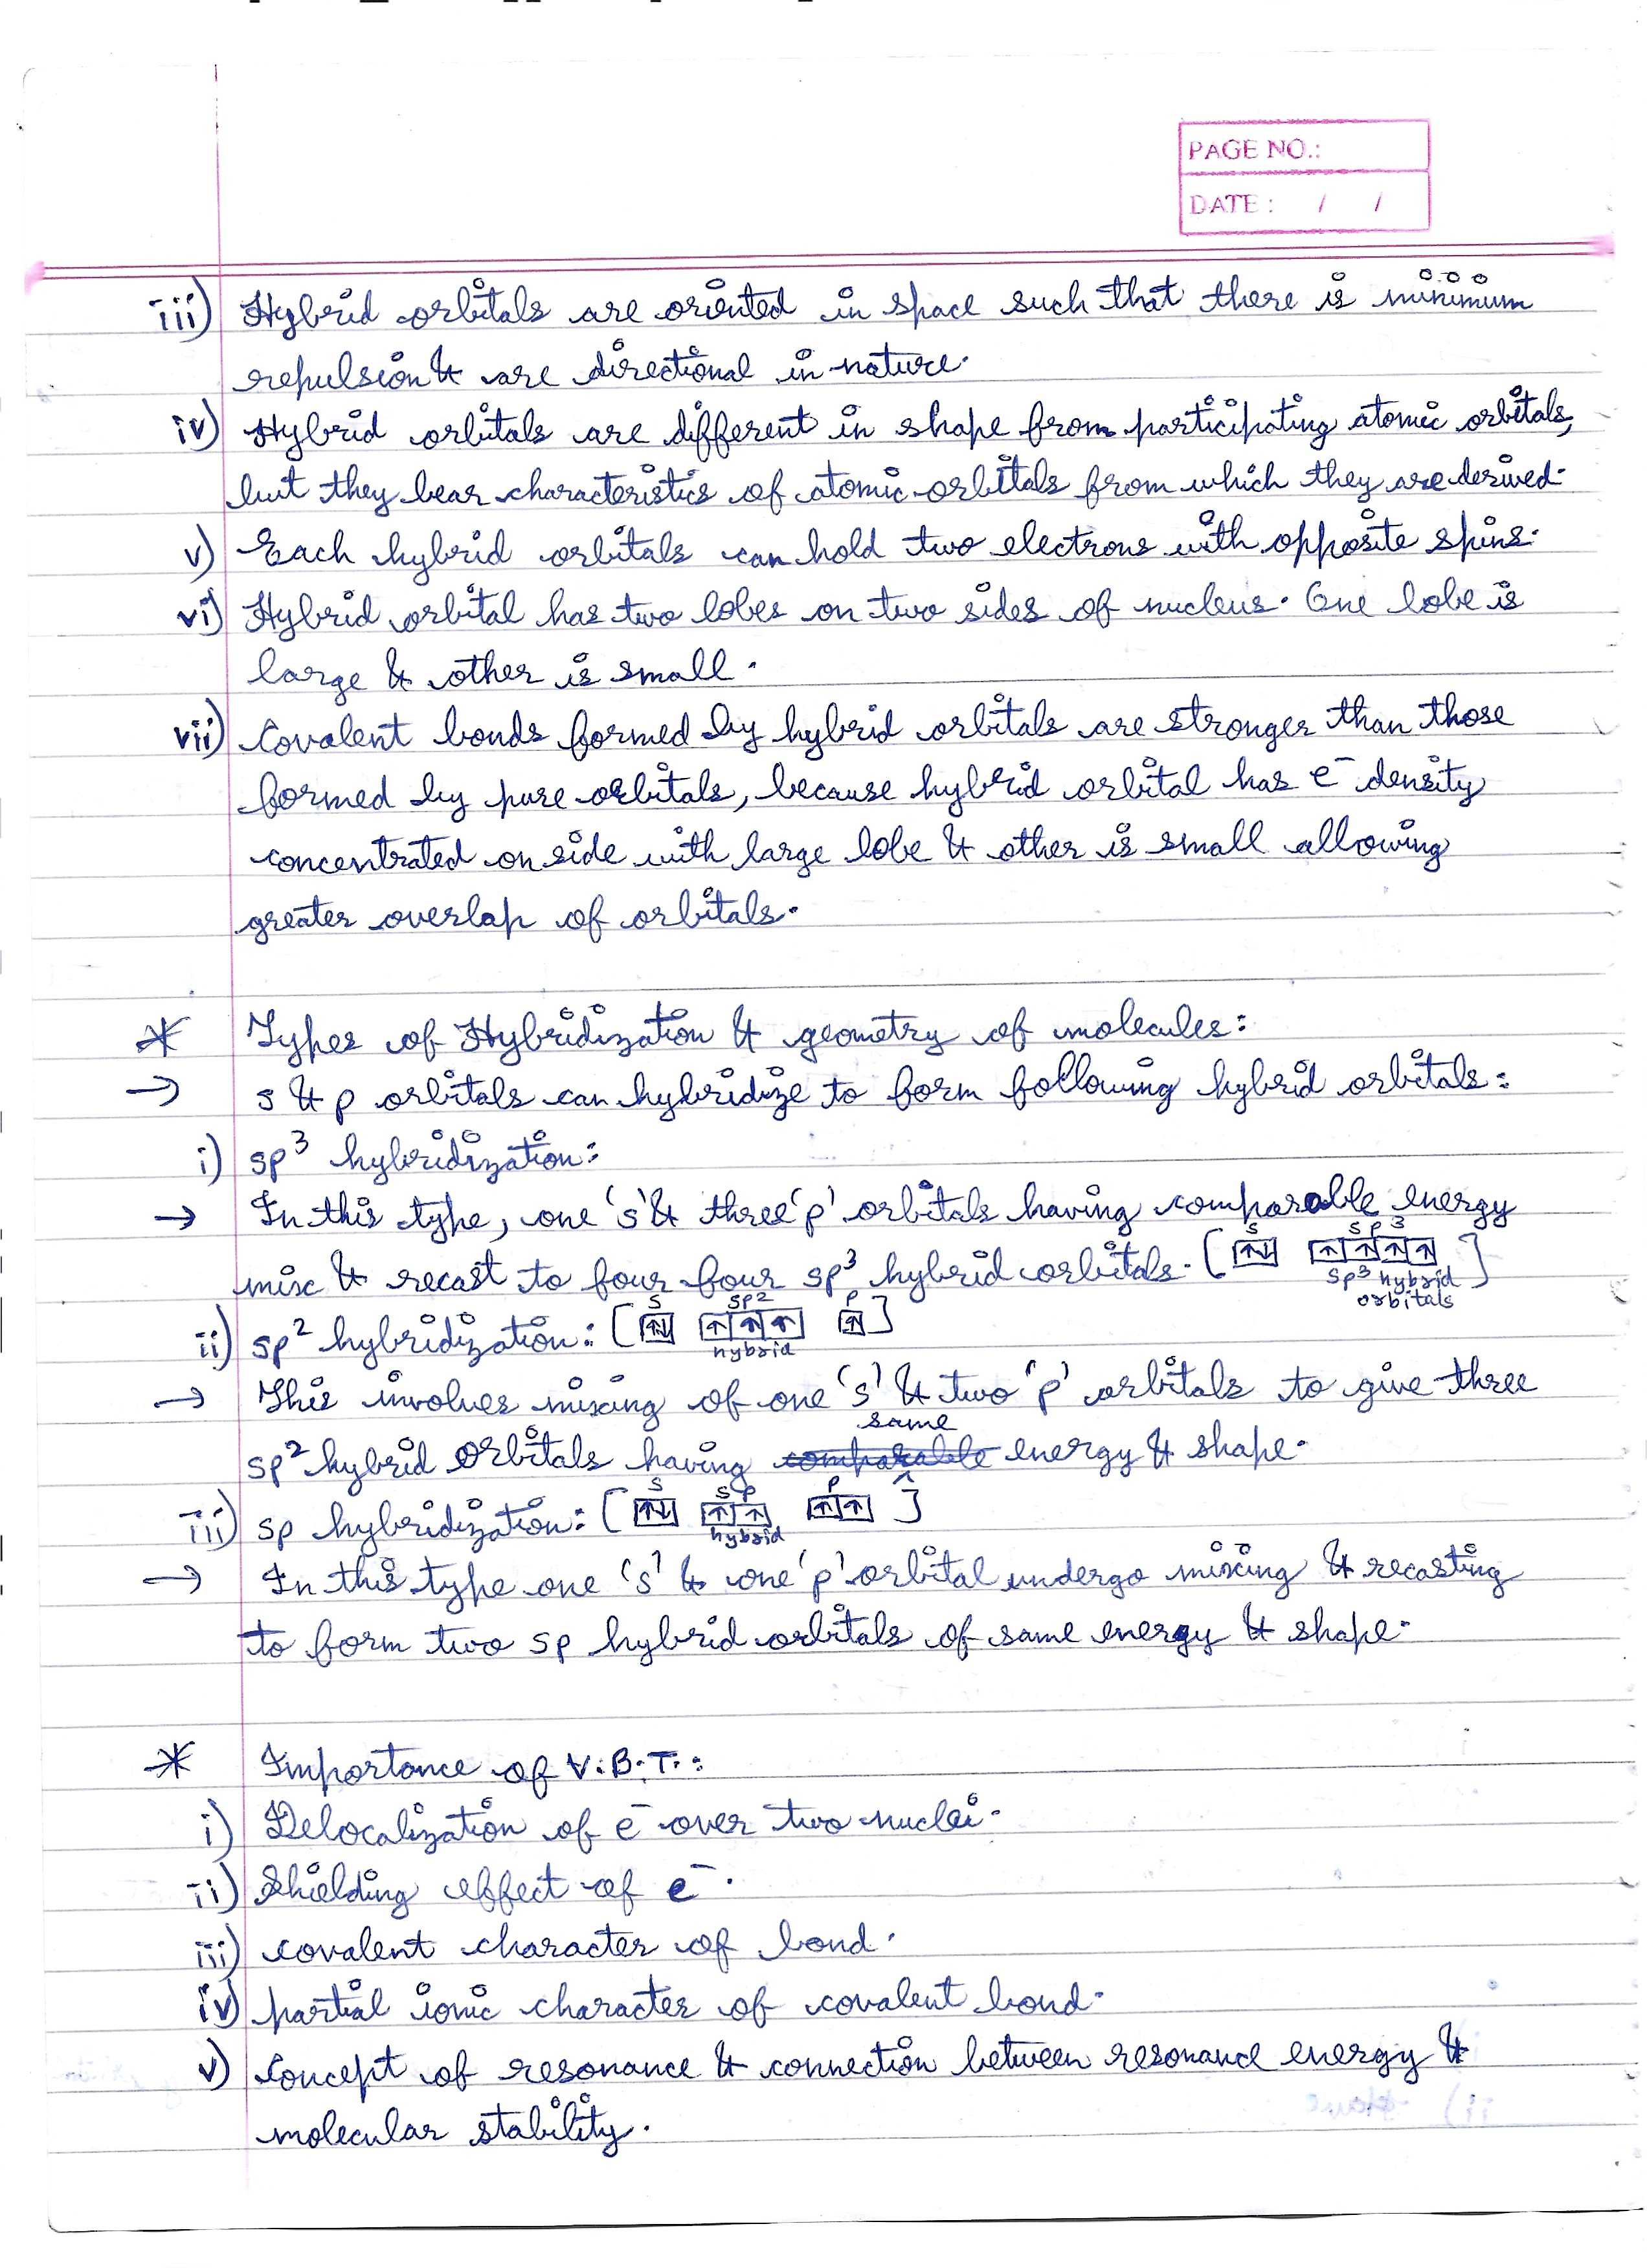 PAGE NO.:
DATE : / /
iii) Hybrid orbitals are oriented in space such that there is minimum
repulsion & are directional in nature.
iv) Hybrid orbitals are different in shape from participating atomic orbitals,
but they bear characteristics of atomic orbitals from which they are derived.
v) Each hybrid orbitals can hold two electrons with opposite spins.
vi) Hybrid orbital has two lobes on two sides of nucleus. One lobe is
large & other is small.
vii) Covalent bonds formed by hybrid orbitals are stronger than those
formed by pure orbitals, because hybrid orbital has e⁻ density
concentrated on side with large lobe & other is small allowing
greater overlap of orbitals.
* Types of Hybridization & geometry of molecules:
→ s & p orbitals can hybridize to form following hybrid orbitals:
i) sp³ hybridization:
→ In this type, one 's' & three 'p' orbitals having comparable energy
mix & recast to four four sp³ hybrid orbitals. [ s ↑↓ sp³ ↑ ↑ ↑ ↑ ]
sp³ hybrid
orbitals
ii) sp² hybridization: [ s ↑↓ sp2 ↑ ↑ ↑ p ↑ ]
hybrid
→ This involves mixing of one 's' & two 'p' orbitals to give three
same
sp² hybrid orbitals having comparable energy & shape.
iii) sp hybridization: [ s ↑↓ sp ↑ ↑ p ↑ ↑ ]
hybrid
→ In this type one 's' & one 'p' orbital undergo mixing & recasting
to form two sp hybrid orbitals of same energy & shape.
* Importance of V.B.T.:
i) Delocalization of e⁻ over two nuclei.
ii) Shielding effect of e⁻.
iii) covalent character of bond.
iv) partial ionic character of covalent bond.
v) Concept of resonance & connection between resonance energy &
molecular stability.